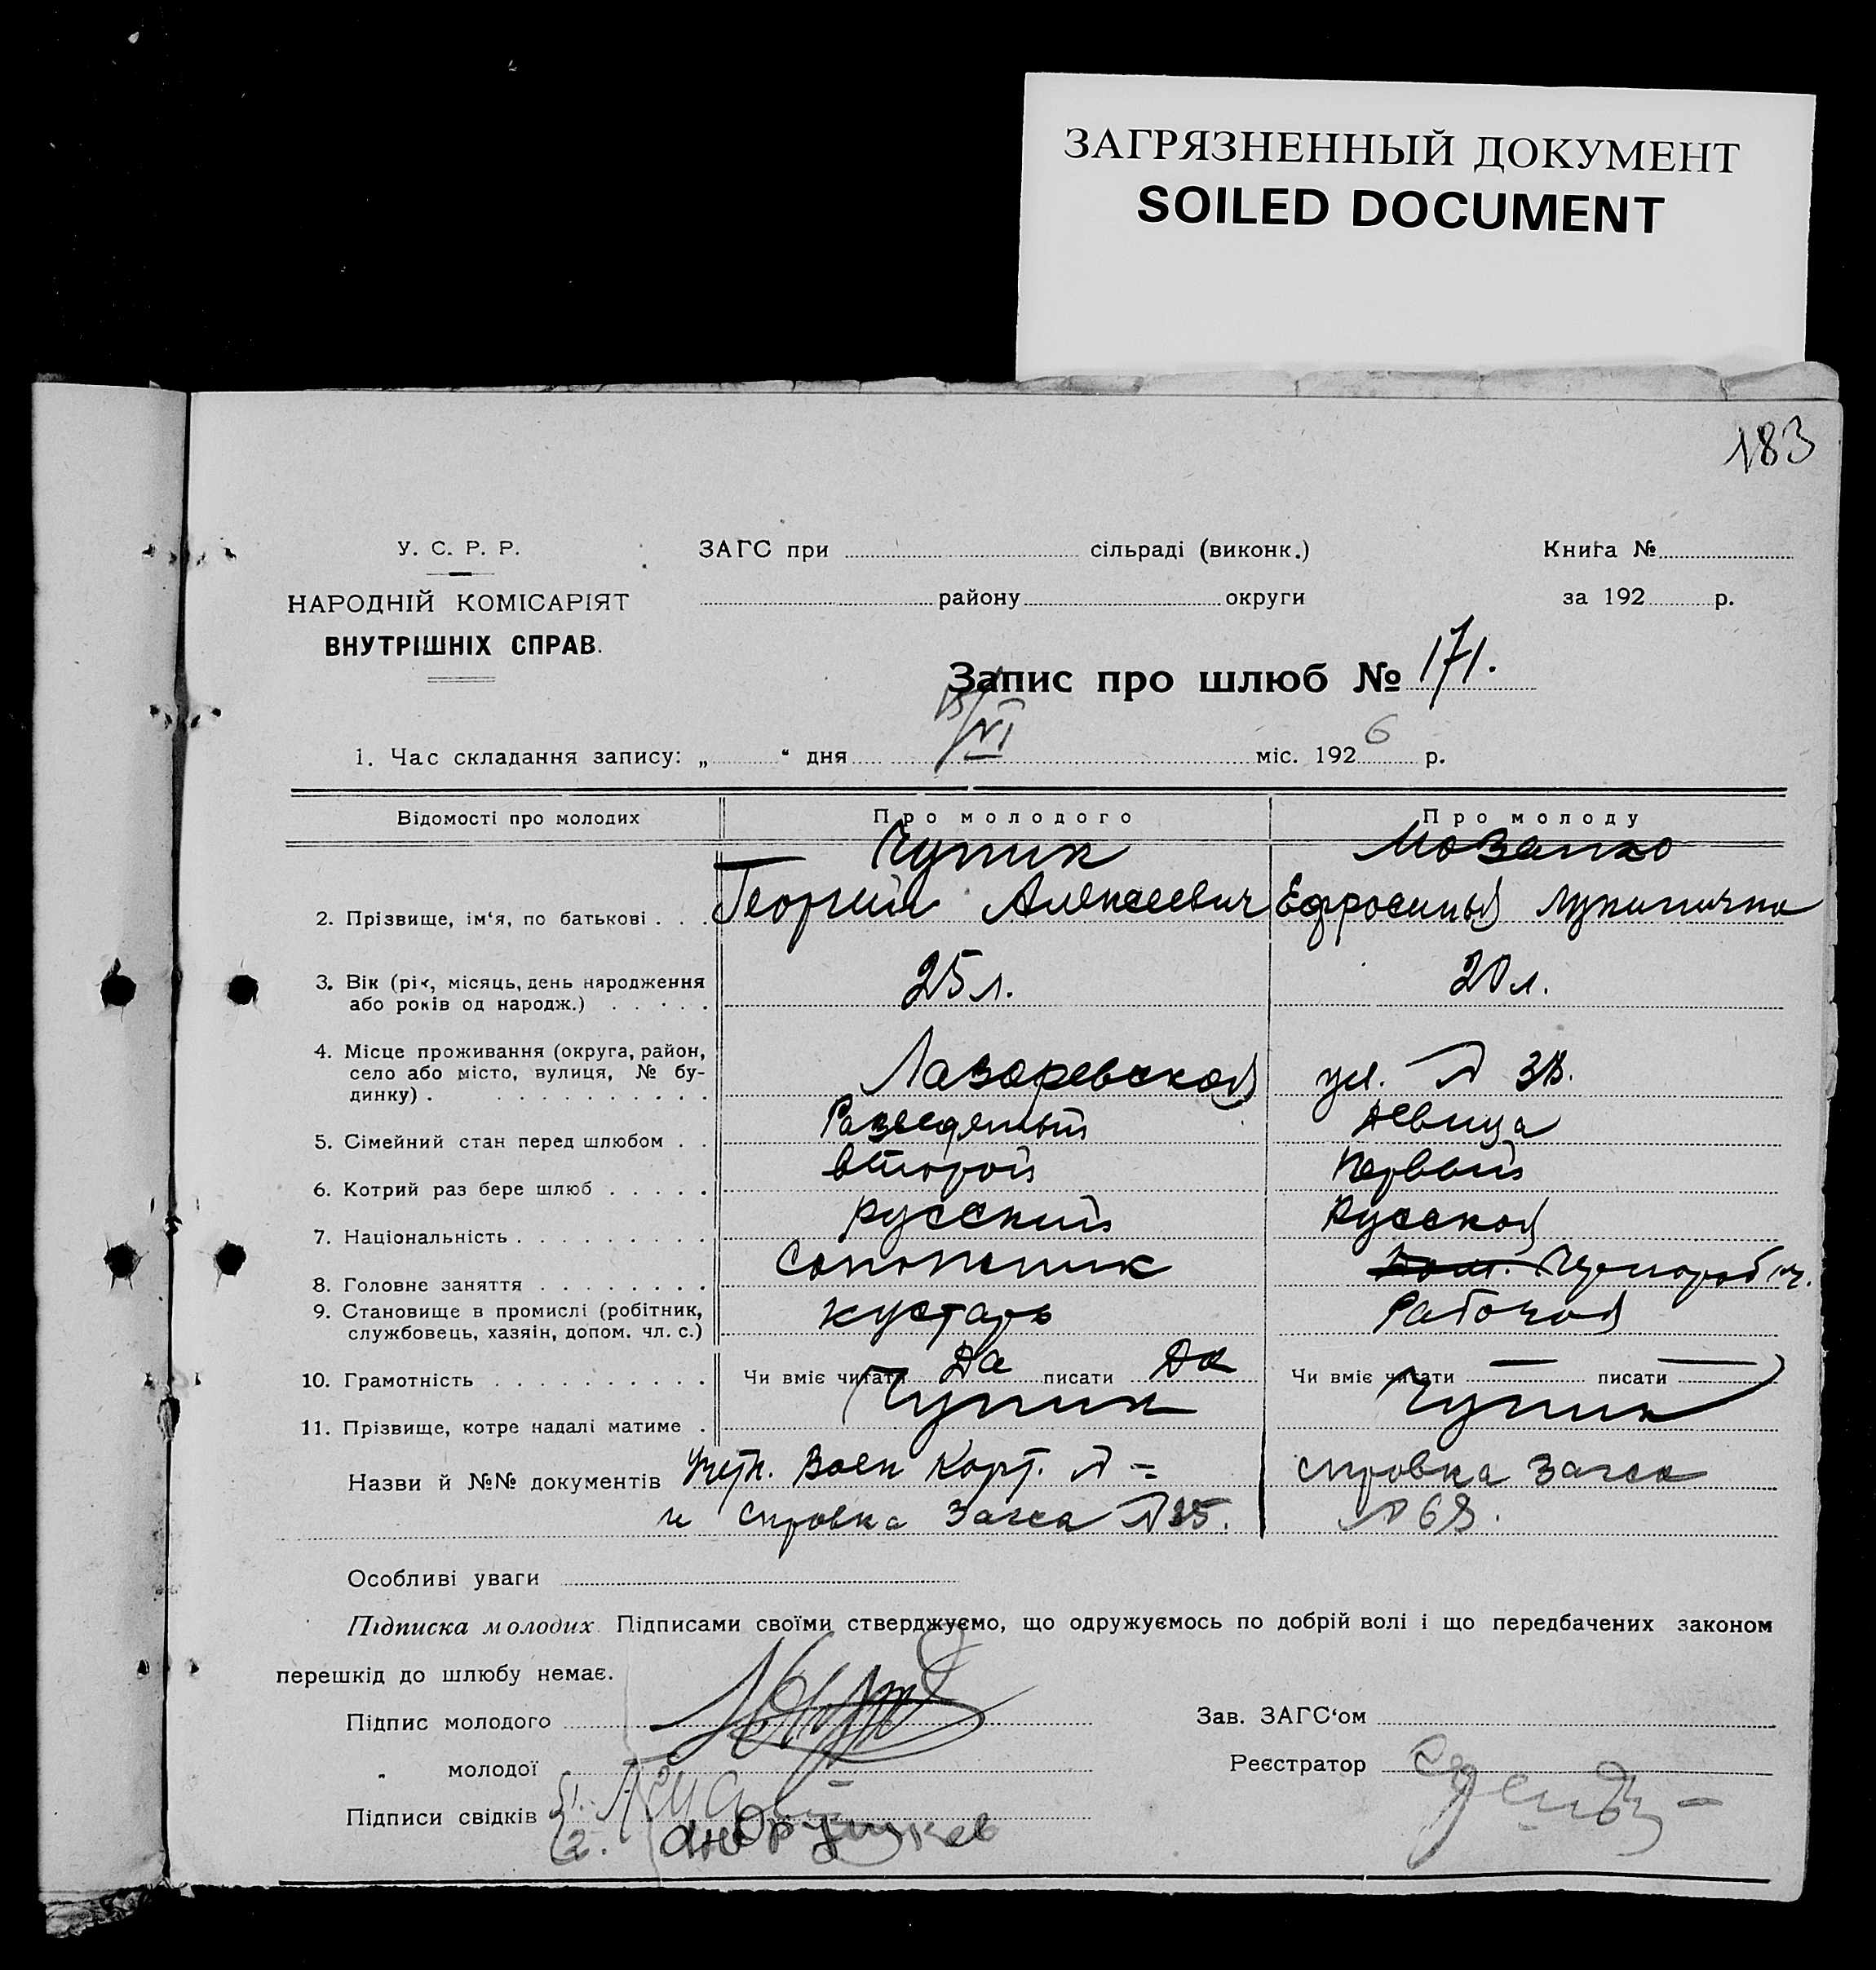 ЗАГРЯЗНЕННЫЙ ДОКУМЕНТ
SOILED DOCUMENT
183
У. С. Р. Р.
НАРОДНІЙ КОМІСАРІЯТ
ВНУТРІШНІХ СПРАВ.
ЗАГС при сільраді (виконк.)
району округи
Книга №
за 192 р.
Запис про шлюб № 171.
1. Час складання запису: „ “ дня /VI міс. 1926 р.
Відомості про молодих Про молодого Про молоду
Чупик
2. Прізвище, ім‘я, по батькові . . . Георгий Алексеевич Ефросинья Лукинична
3. Вік (рік, місяць, день народження
або років од народж.) . . . . . 25 л. 20 л.
4. Місце проживання (округа, район,
село або місто, вулиця, № бу-
динку) . . . . . . . . . . . Лазаревская ул. №
5. Сімейний стан перед шлюбом . . Разведенный девица
6. Котрий раз бере шлюб . . . . . второй первый
7. Національність . . . . . . . . . русский русская
8. Головне заняття . . . . . . . . Сапожник
9. Становище в промислі (робітник,
службовець, хазяін, допом. чл. с.) кустарь Рабочая
10. Грамотність . . . . . . . . . . Чи вміє читати да писати да Чи вміє читати — писати —
11. Прізвище, котре надалі матиме . Чупик Чупик
Назви й №№ документів Учетн. Воен Карт. № = справка Загса
и справка Загса № 35. № 68.
Особливі уваги
Підписка молодих. Підписами своїми стверджуємо, що одружуємось по добрій волі і що передбачених законом
перешкід до шлюбу немає.
Підпис молодого
„ молодої
Підписи свідків 1.
2.
Зав. ЗАГС‘ом
Реєстратор